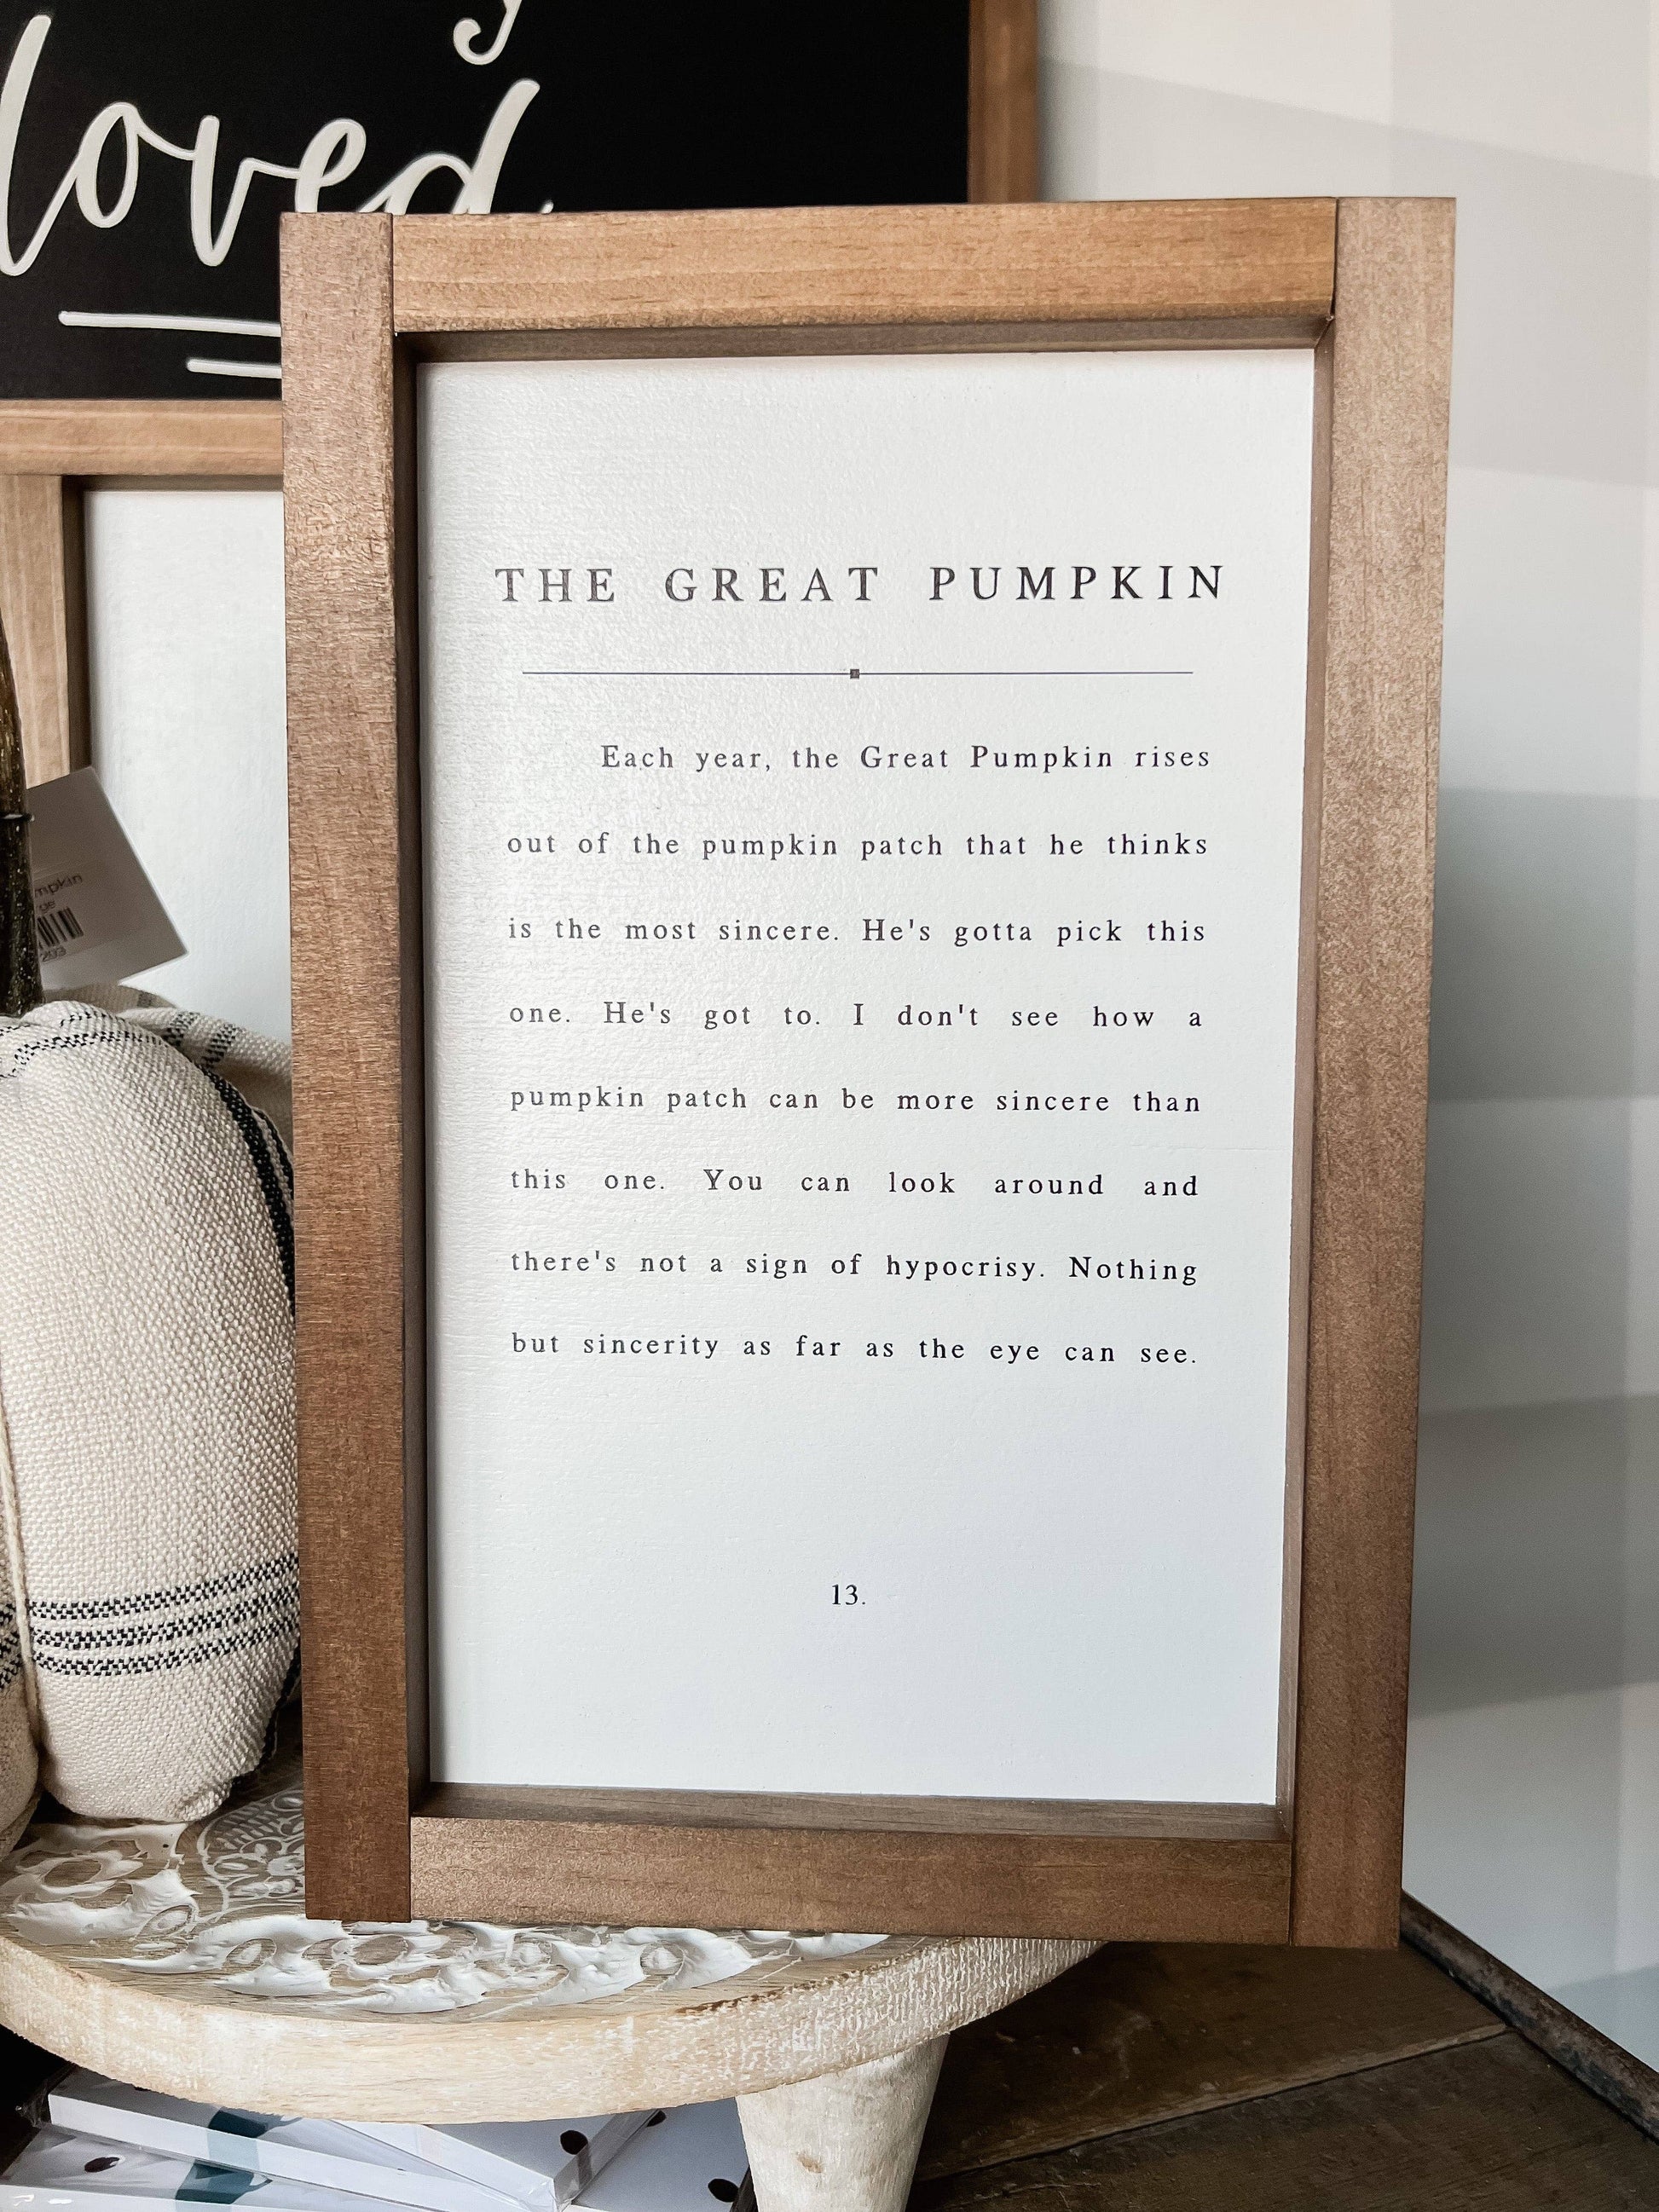 loved
THE GREAT PUMPKIN
Each year, the Great Pumpkin rises
out of the pumpkin patch that he thinks
is the most sincere. He's gotta pick this
one. He's got to. I don't see how a
pumpkin patch can be more sincere than
this one. You can look around and
there's not a sign of hypocrisy. Nothing
but sincerity as far as the eye can see.
13.